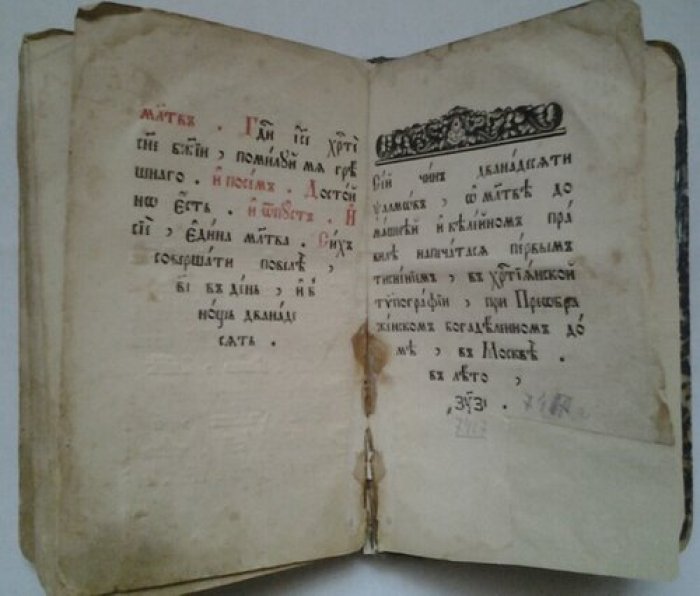 мл҃твꙋ . Гдⷭ҇и і҆и҃се хрⷭ҇те́
сн҃е бж҃їи , поми́лꙋй мя грѣ́
шнаго . и҆ посе́мъ . Досто́й
но є҆́сть . и҆ ѿпꙋ́стъ . И҆
сїѐ , є҆ди́на мл҃тва . Си́хъ
соверша́ти повелѣ̀ ,
в҃і въ де́нь , и҆ в҃і
но́щь двана́де
сять .
Сїй чи́нъ двана́десяти
ѱалмѡ́въ , ѡ҆ мл҃твѣ до
ма́шнѣй и҆ кѣлі́йномъ пра́
вилѣ напеча́тася пе́рвымъ
тисне́нїемъ , въ хрⷭ҇тїа́нской
тѷпогра́фїи , при Преѡбра
же́нскомъ богадѣ́ленномъ до́
мѣ , въ Москвѣ̀ .
въ лѣ́то ,
҂зу҃зі .
7417